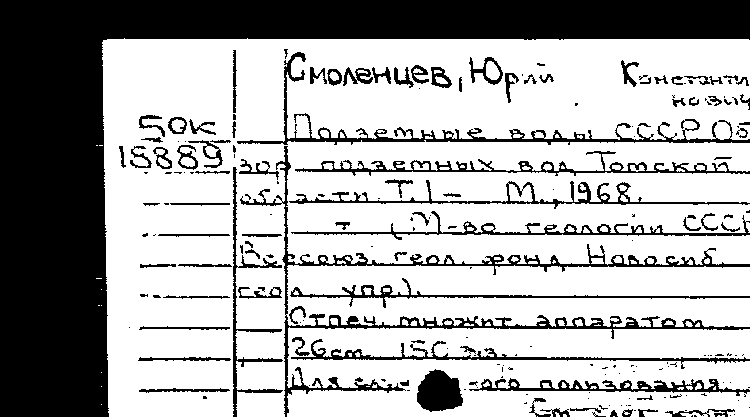 Смоленцев, Юрий Константи
нович
50к
Подземные воды СССР Об
18889
зор подземных вод Томской
области. Т. 1 – М., 1968.
т (М-во геологии СССР
Всесоюз. геол. фонд Новосиб.
геол. упр.).
Отпеч. множит. аппаратом
26 см. 150 экз.
Для пользования
См. след. карт